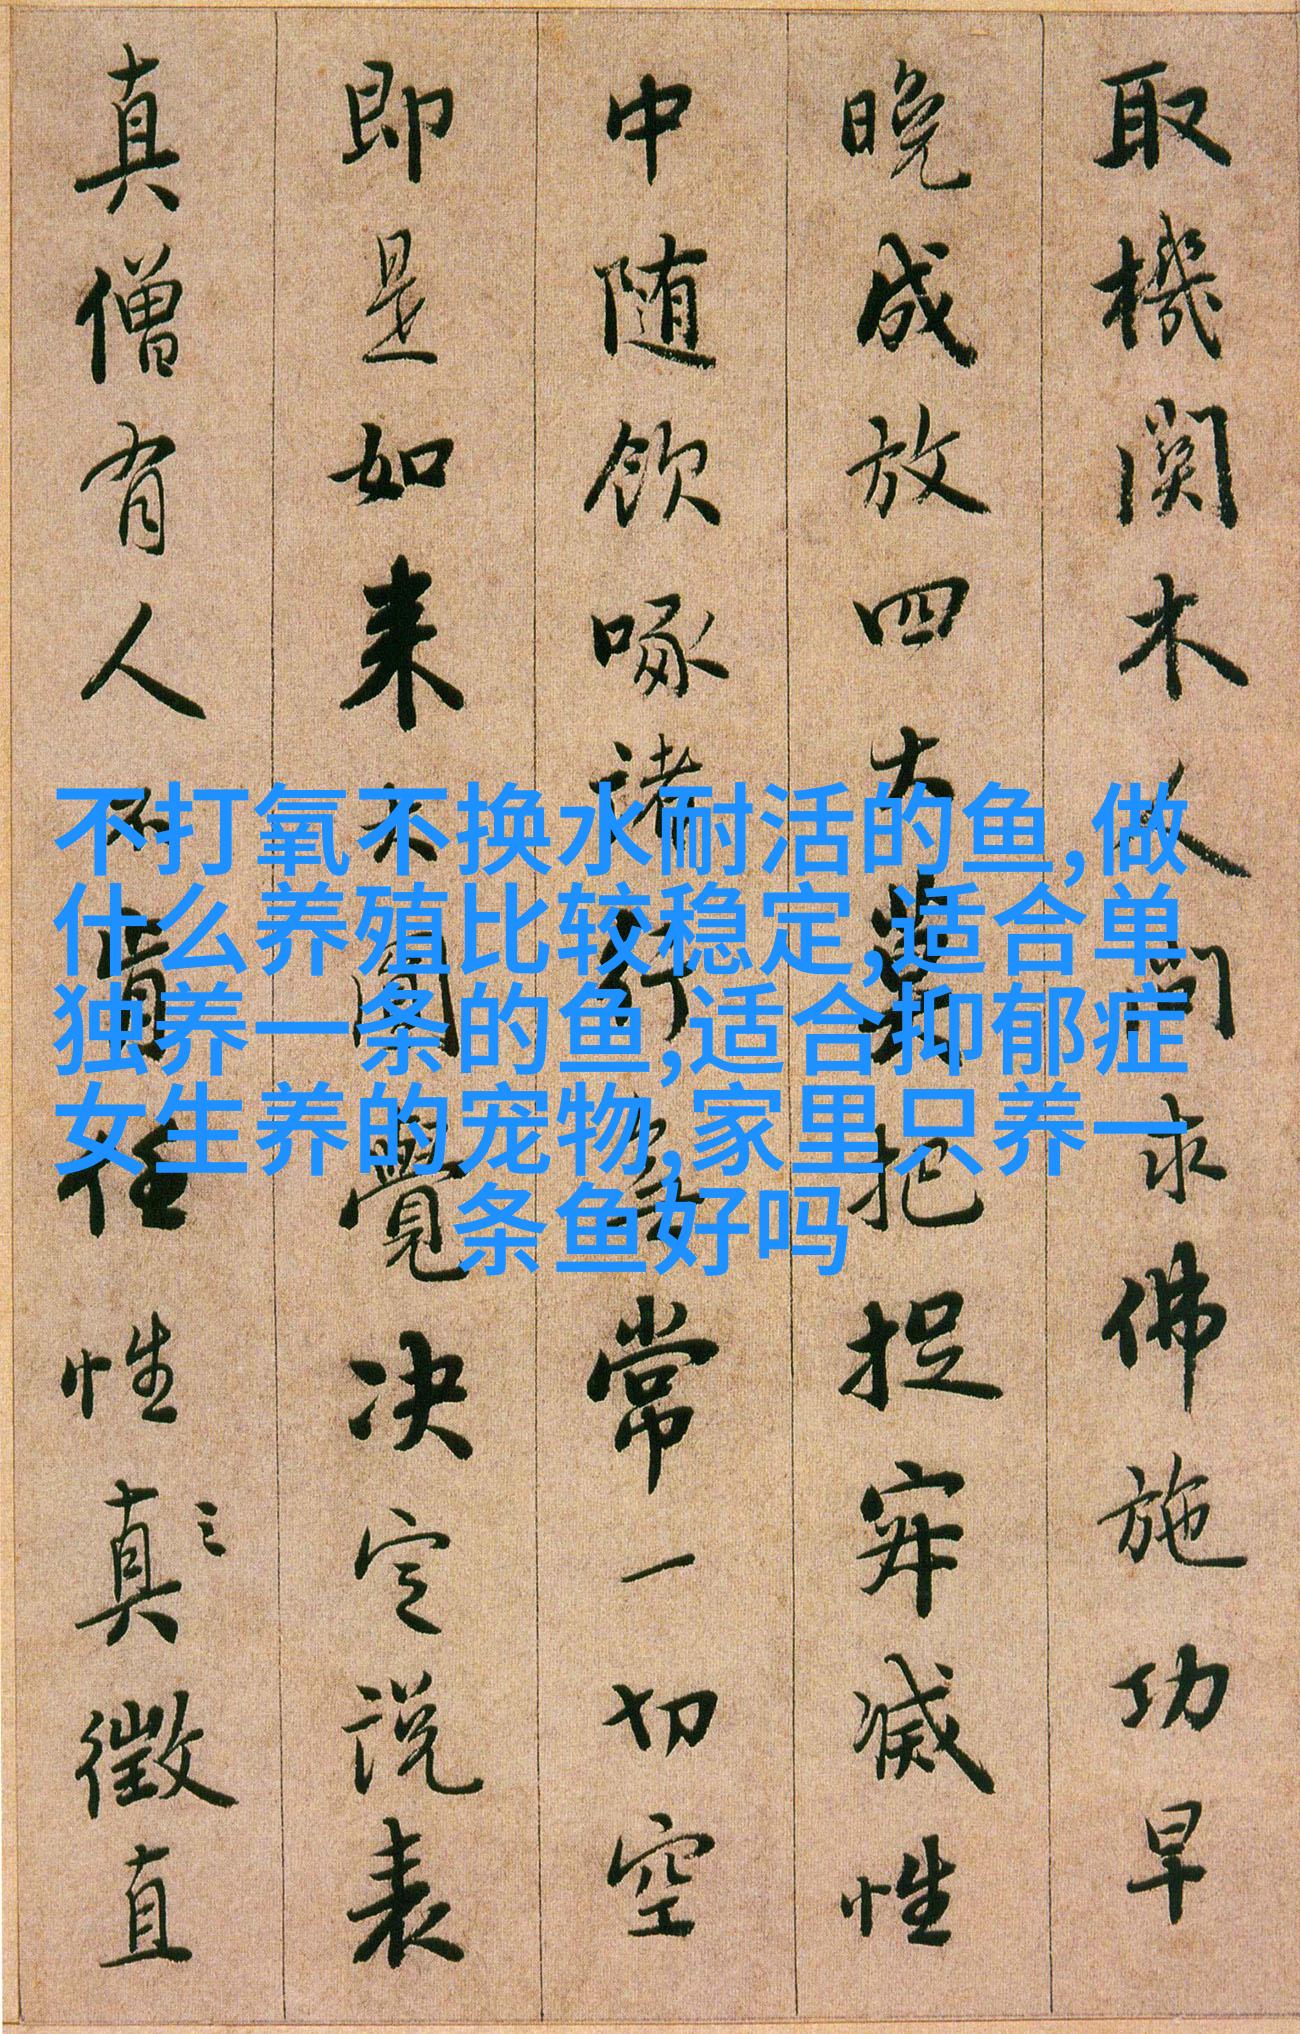 取機関木人問求佛施功早
晚成放四大莫把捉寂滅性
中随飲啄諸行無常一切空
即是如来大圓覺决定説表
真僧有人不肯任性真徵直
不打氧不换水耐活的鱼,做
什么养殖比较稳定,适合单
独养一条的鱼,适合抑郁症
女生养的宠物,家里只养一
条鱼好吗